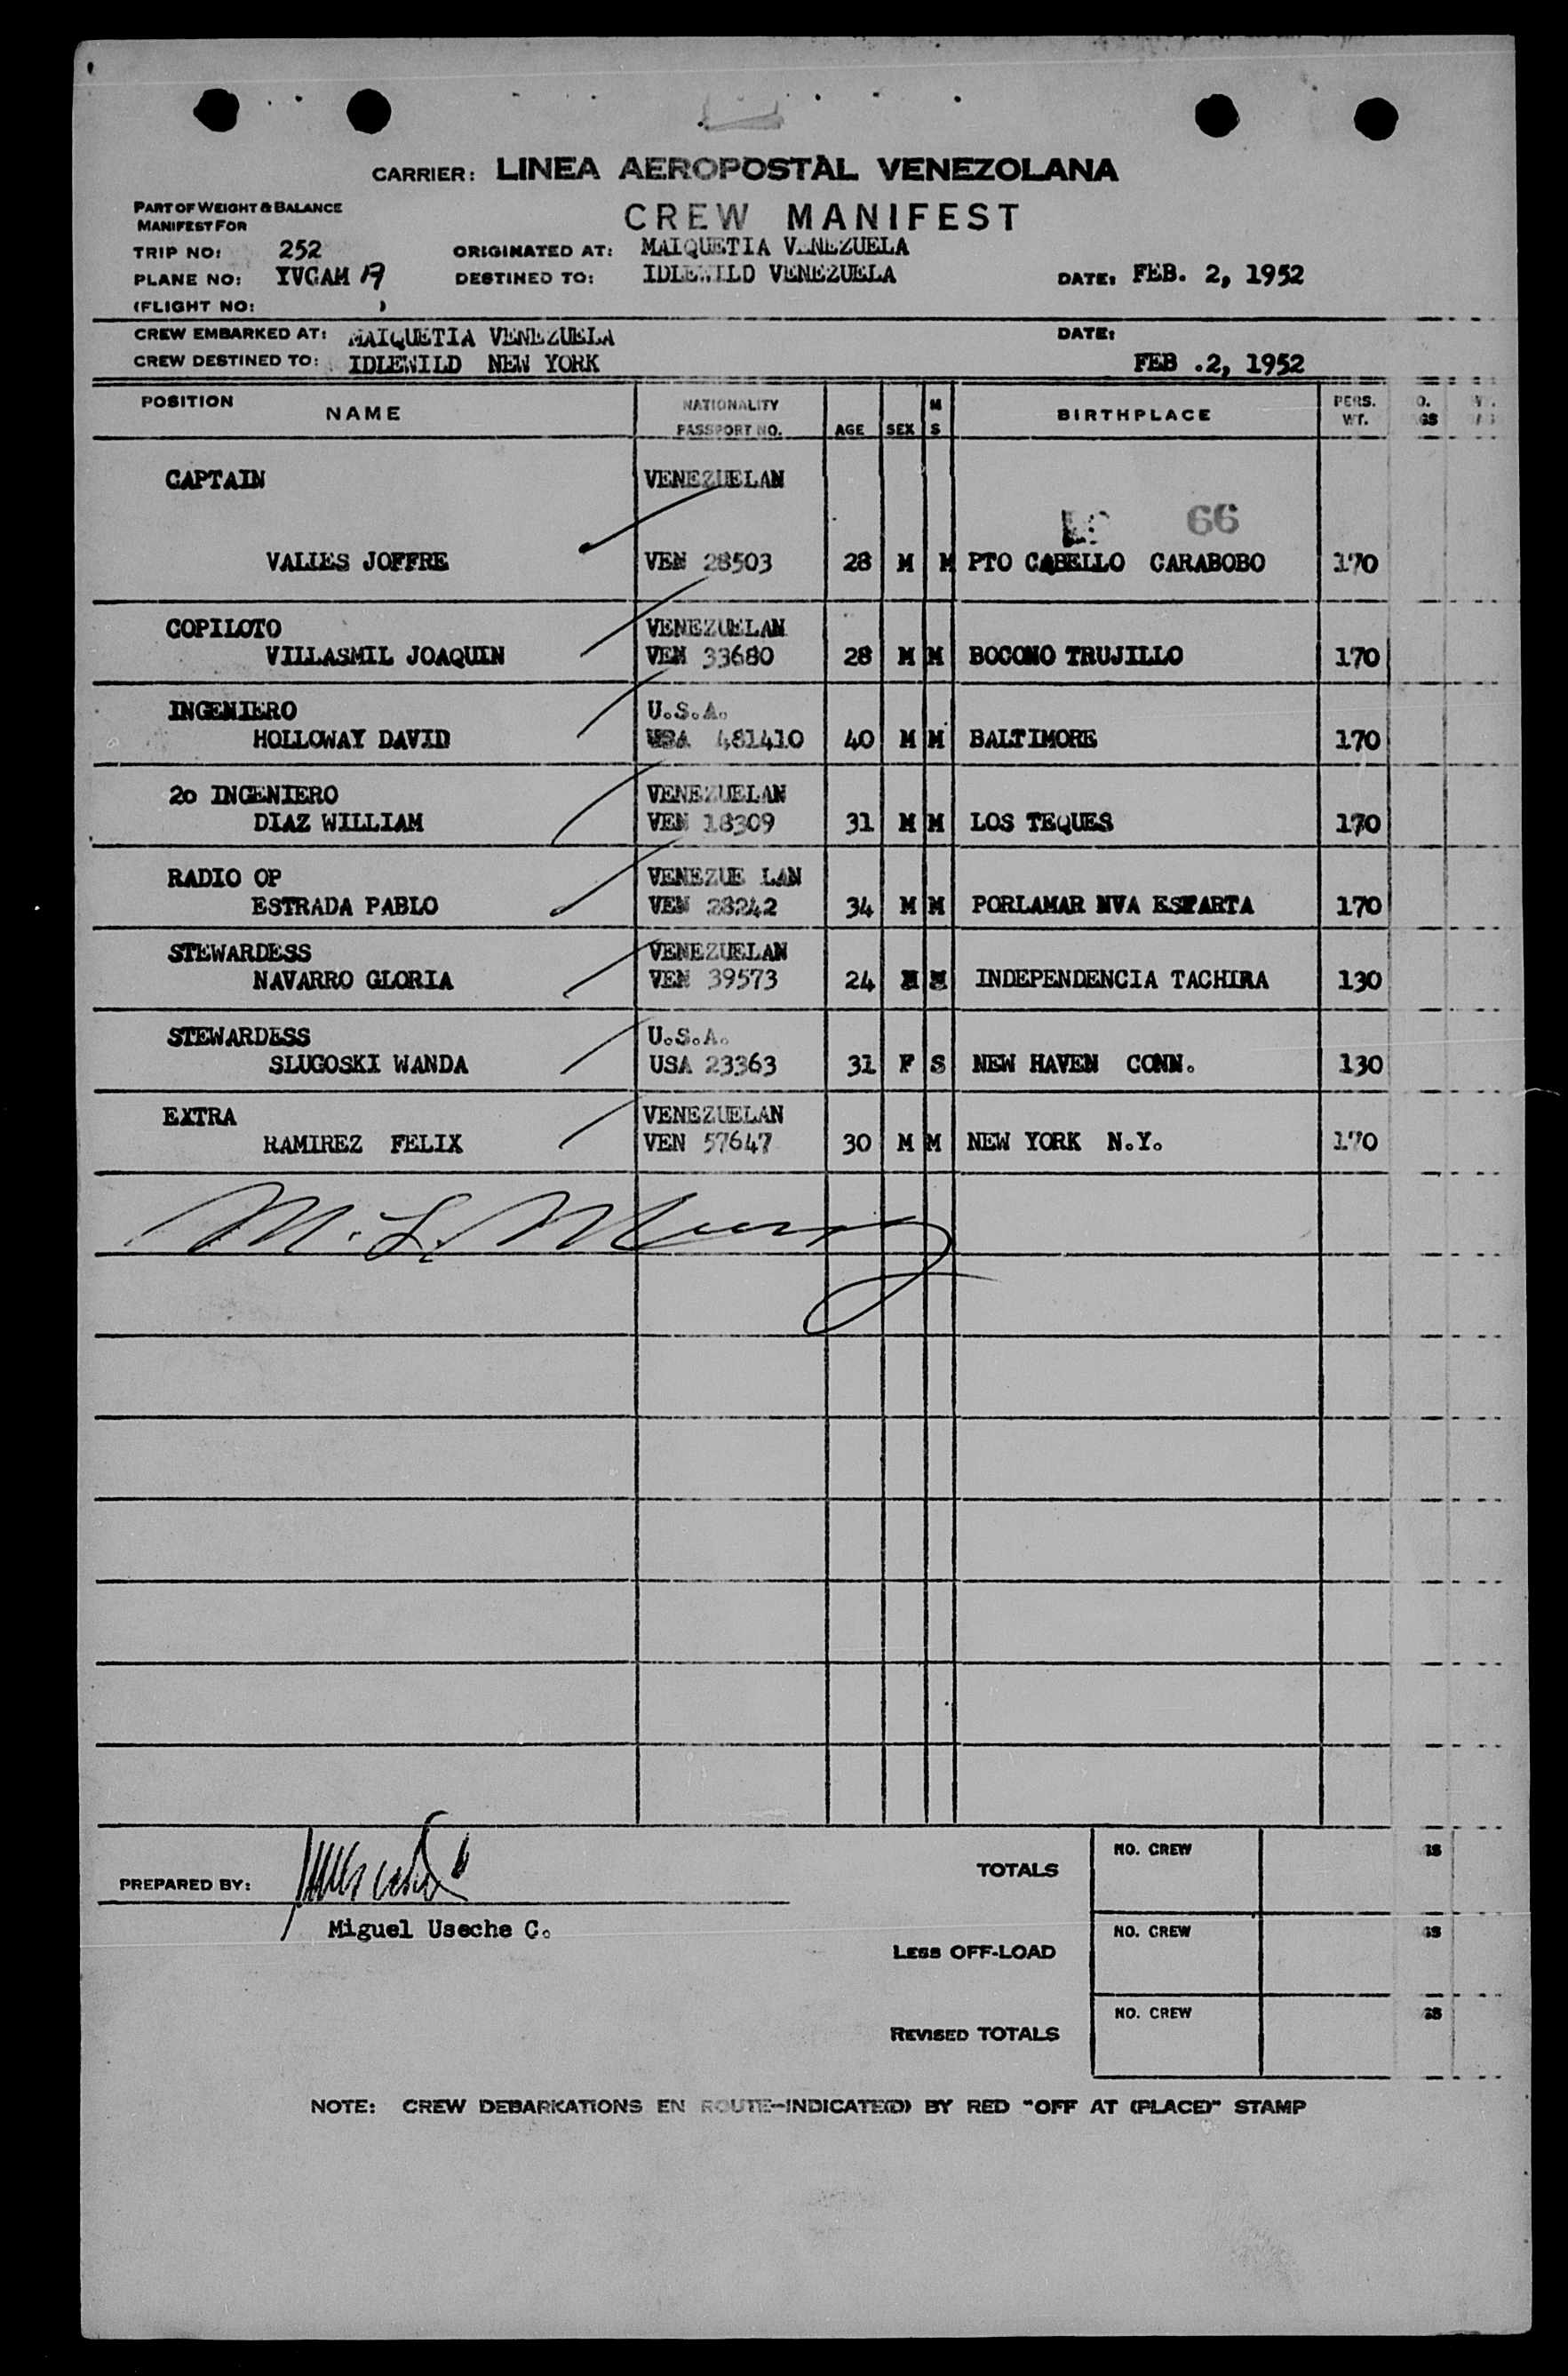 CARRIER: LINEA AEROPOSTAL VENEZOLANA
PART OF WEIGHT & BALANCE
MANIFEST FOR
CREW MANIFEST
TRIP NO: 252 ORIGINATED AT: MAIQUETIA VENEZUELA
PLANE NO: YVCAM DESTINED TO: IDLEWILD VENEZUELA DATE: FEB. 2, 1952
(FLIGHT NO: )
CREW EMBARKED AT: MAIQUETIA VENEZUELA DATE:
CREW DESTINED TO: IDLEWILD NEW YORK FEB .2, 1952
POSITION NAME NATIONALITY PASSPORT NO. AGE SEX M S BIRTHPLACE PERS. WT.
CAPTAIN VENEZUELAN
66
VALIES JOFFRE VEN 28503 28 M M PTO CABELLO CARABOBO 170
COPILOTO VENEZUELAN
VILLASMIL JOAQUIN VEN 33680 28 M M BOCONO TRUJILLO 170
INGENIERO U.S.A.
HOLLOWAY DAVID USA 481410 40 M M BALTIMORE 170
2o INGENIERO VENEZUELAN
DIAZ WILLIAM VEN 18309 31 M M LOS TEQUES 170
RADIO OP VENEZUE LAN
ESTRADA PABLO VEN 28242 34 M M PORLAMAR NVA ESPARTA 170
STEWARDESS VENEZUELAN
NAVARRO GLORIA VEN 39573 24 INDEPENDENCIA TACHIRA 130
STEWARDESS U.S.A.
SLUGOSKI WANDA USA 23363 31 F S NEW HAVEN CONN. 130
EXTRA VENEZUELAN
RAMIREZ FELIX VEN 57647 30 M M NEW YORK N.Y. 170
M. L.
PREPARED BY:
Miguel Useche C.
TOTALS NO. CREW
LESS OFF-LOAD NO. CREW
REVISED TOTALS NO. CREW
NOTE: CREW DEBARKATIONS EN ROUTE-INDICATE(D) BY RED "OFF AT (PLACE)" STAMP